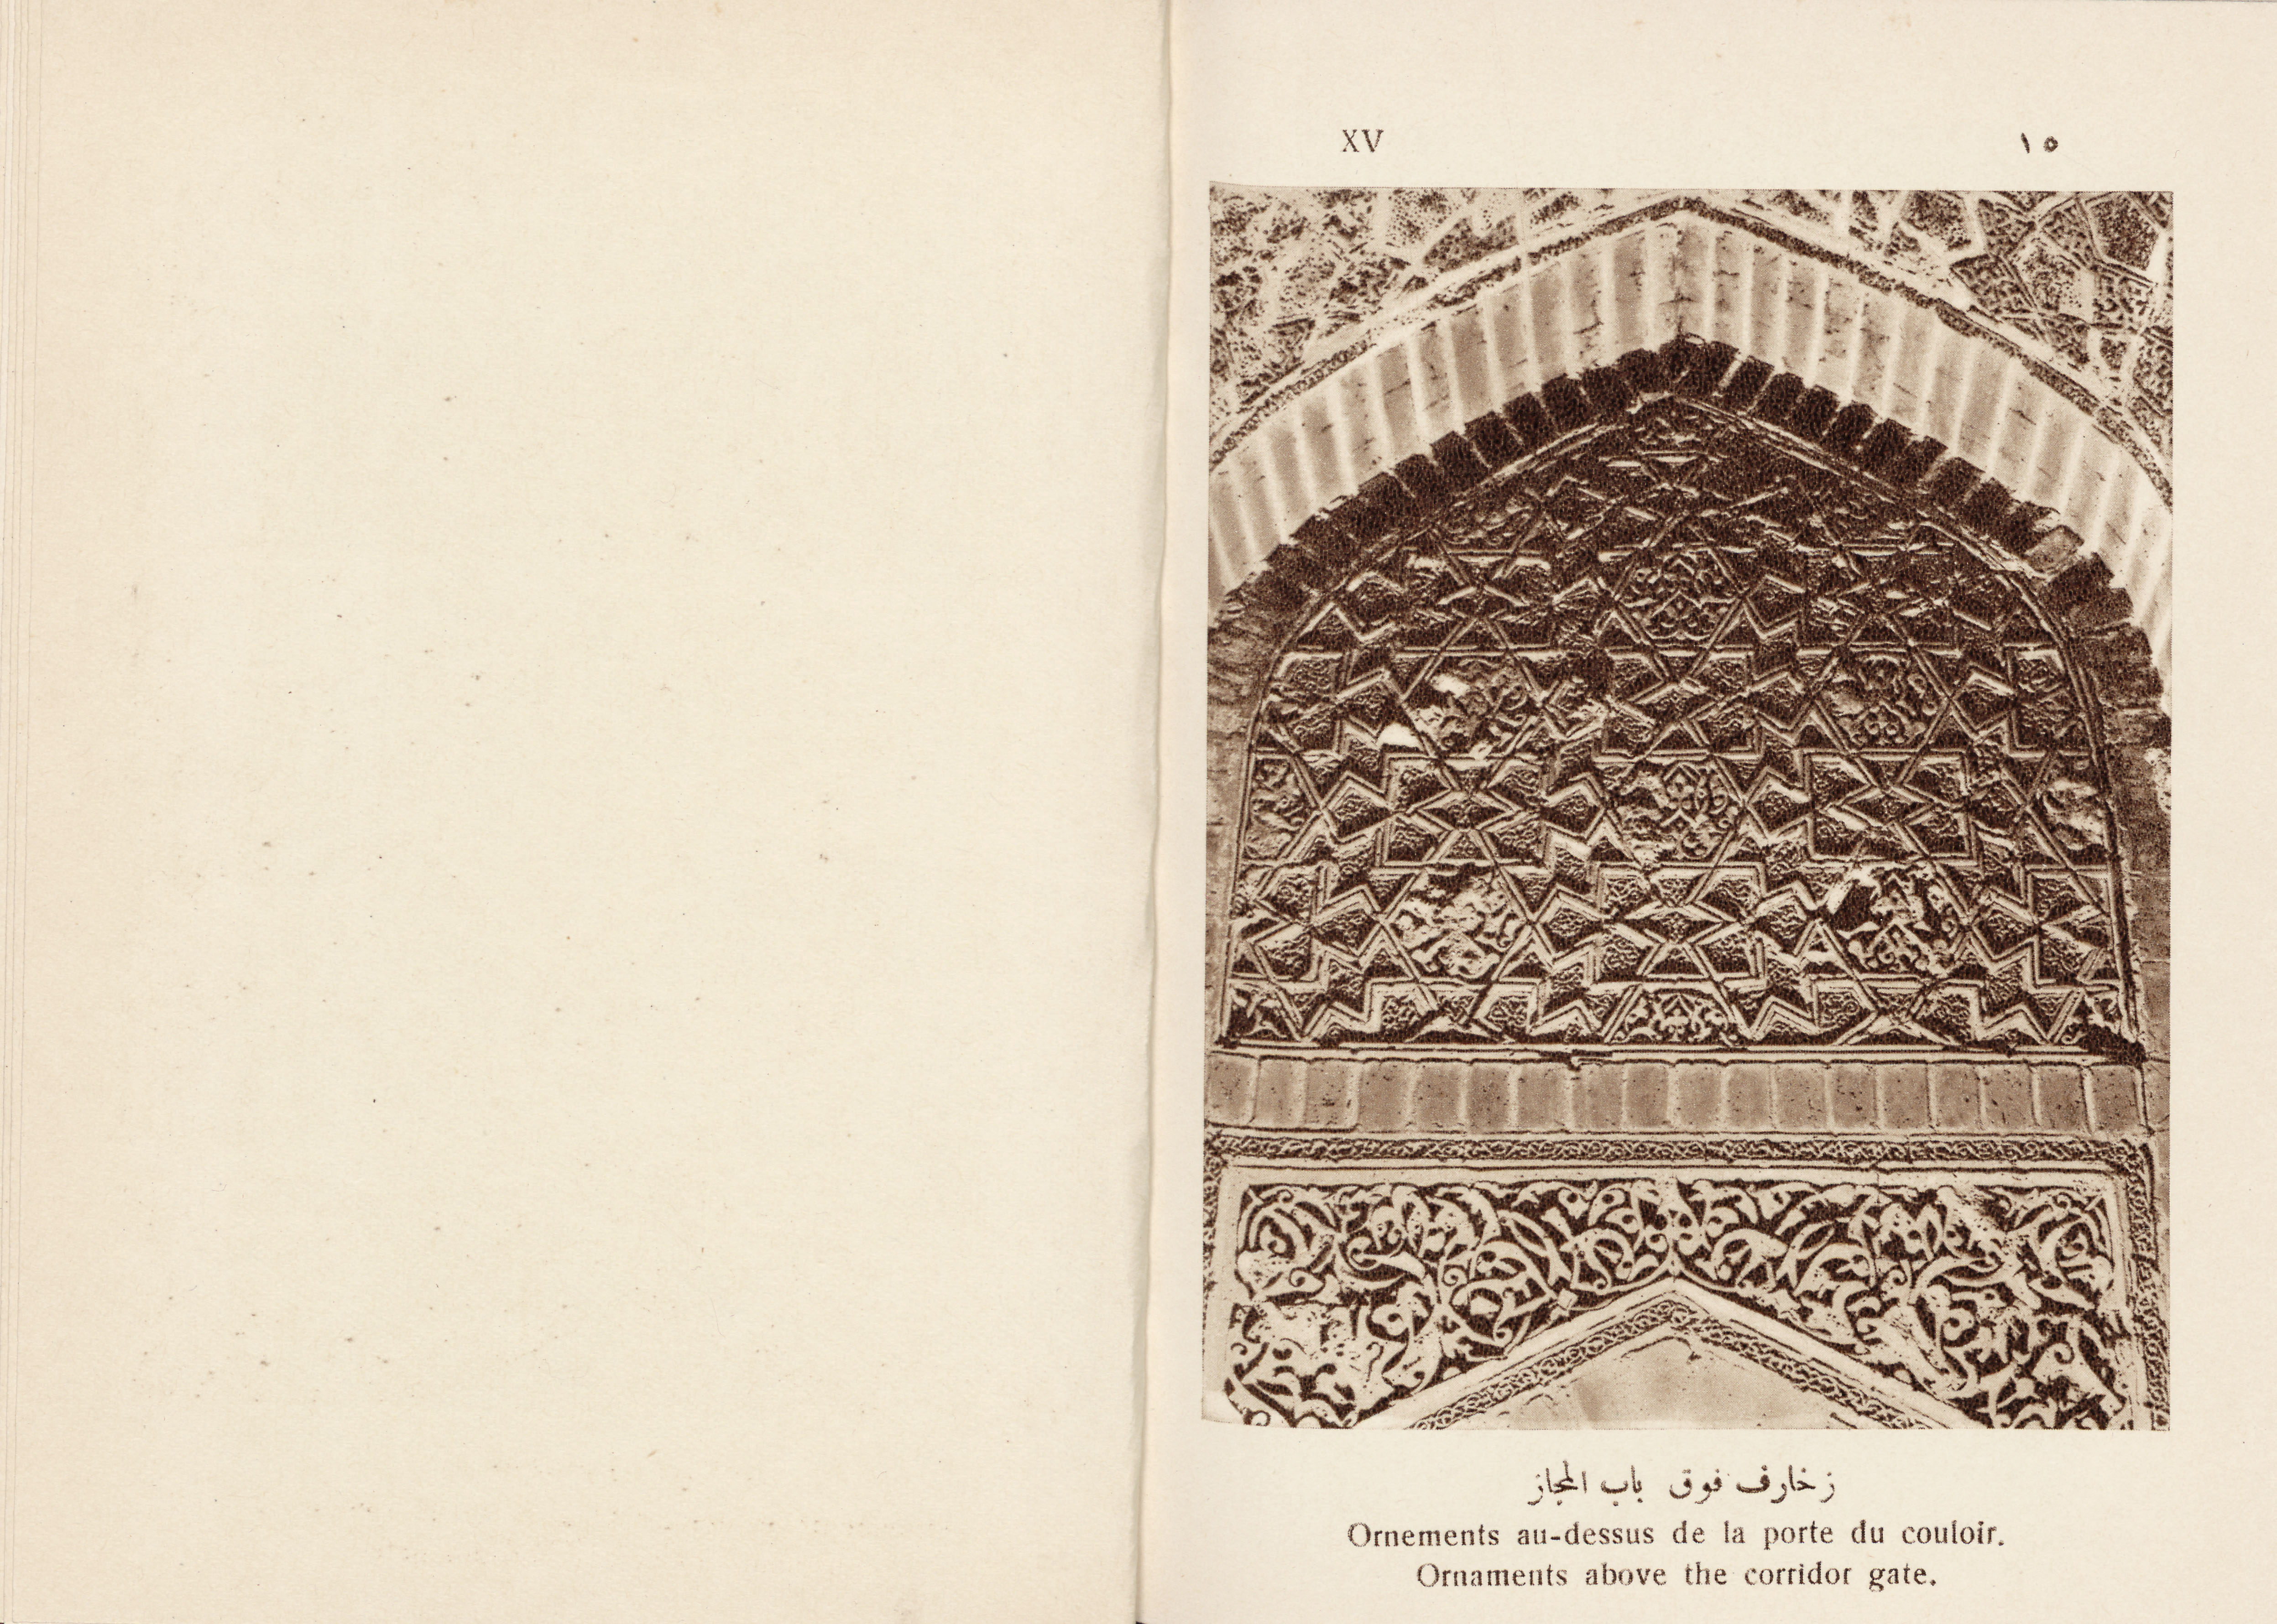 XV
١٥
زخارف فوق باب المجاز
Ornements au-dessus de la porte du couloir.
Ornaments above the corridor gate.